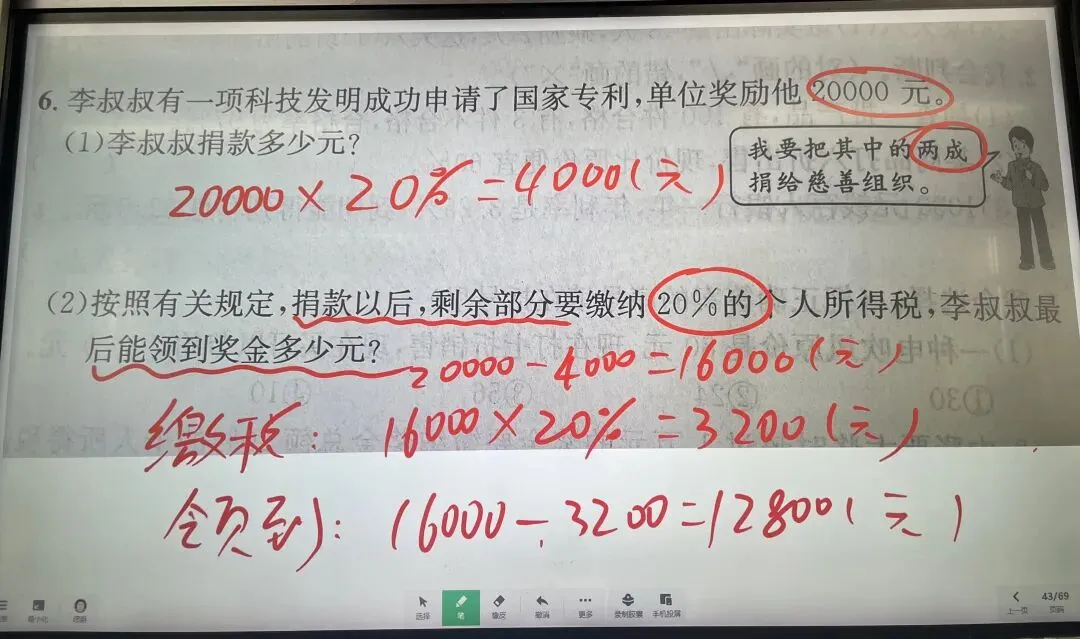 6. 李叔叔有一项科技发明成功申请了国家专利,单位奖励他 20000 元。
(1)李叔叔捐款多少元?
我要把其中的两成
捐给慈善组织。
20000×20%=4000(元)
(2)按照有关规定,捐款以后,剩余部分要缴纳 20%的个人所得税,李叔叔最
后能领到奖金多少元?
20000-4000=16000(元)
缴税: 16000×20%=3200(元)
领到: 16000-3200=12800(元)
最小化
选择
笔
橡皮
撤消
更多
录制胶囊
手机投屏
上一页
43/69
页码